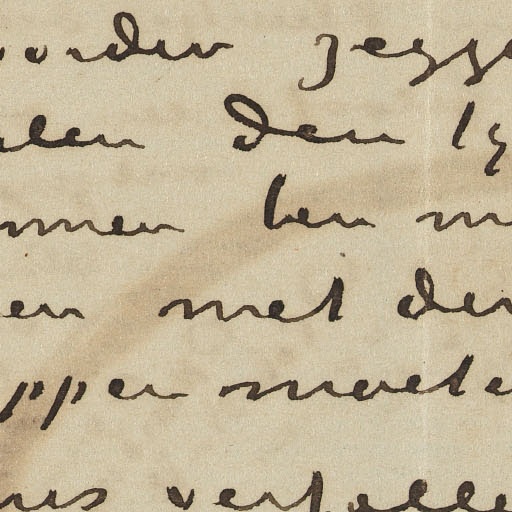 oorder zegge
alen den ty
mmen ten m
en met den
ppen moete
rus verfolle